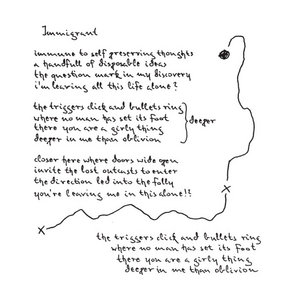 Immigrant
immune to self preserving thoughts
a handfull of disposable ideas
the question mark in my discovery
i'm leaving all this life alone?
the triggers click and bullets ring
where no man has set its foot
there you are a girly thing
deeper in me than oblivion
deeper
closer here where doors wide open
invite the lost outcasts to enter
the direction led into the folly
you're leaving me in this alone!!
the triggers click and bullets ring
where no man has set its foot
there you are a girly thing
deeper in me than oblivion